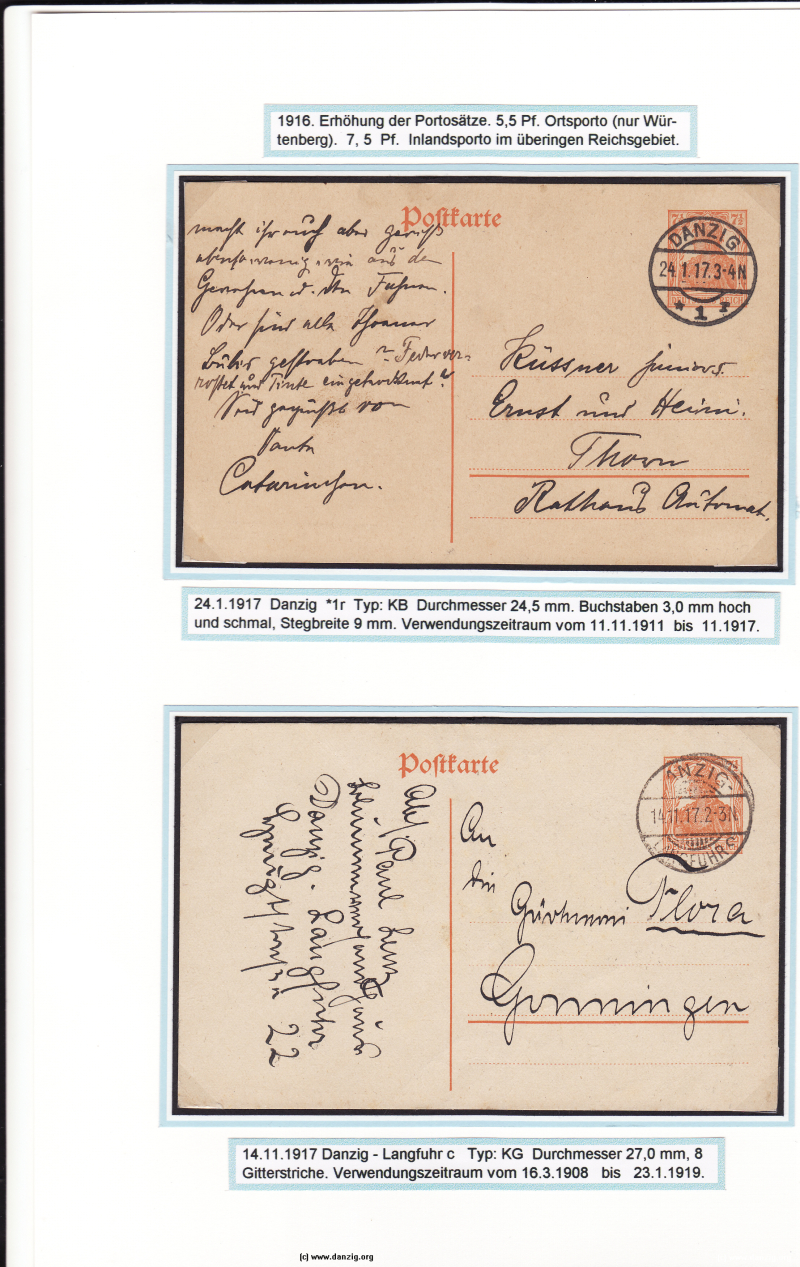 1916. Erhöhung der Portosätze. 5,5 Pf. Ortsporto (nur Wür-
tenberg). 7, 5 Pf. Inlandsporto im überingen Reichsgebiet.
Postkarte
7½ 7½
DANZIG
24.1.17.3-4N
* 1 r
macht ihr euch aber gewiß
aus den
Oder sind alle Thorner
gestorben ? Feder ver-
rostet und Tinte eingetrocknet?
Seid gegrüßt von
Tante
Catarinchen.
Küssner juniors.
Ernst und Heini.
Thorn
Rathaus Automat.
24.1.1917 Danzig *1r Typ: KB Durchmesser 24,5 mm. Buchstaben 3,0 mm hoch
und schmal, Stegbreite 9 mm. Verwendungszeitraum vom 11.11.1911 bis 11.1917.
Postkarte
ANZIG-
14.11.17.2-3N
LANGFUHR c
An
die
Gärtnerei Flora
Gönningen
Abs. Paul
Danzig-Langfuhr
22
14.11.1917 Danzig - Langfuhr c Typ: KG Durchmesser 27,0 mm, 8
Gitterstriche. Verwendungszeitraum vom 16.3.1908 bis 23.1.1919.
(c) www.danzig.org